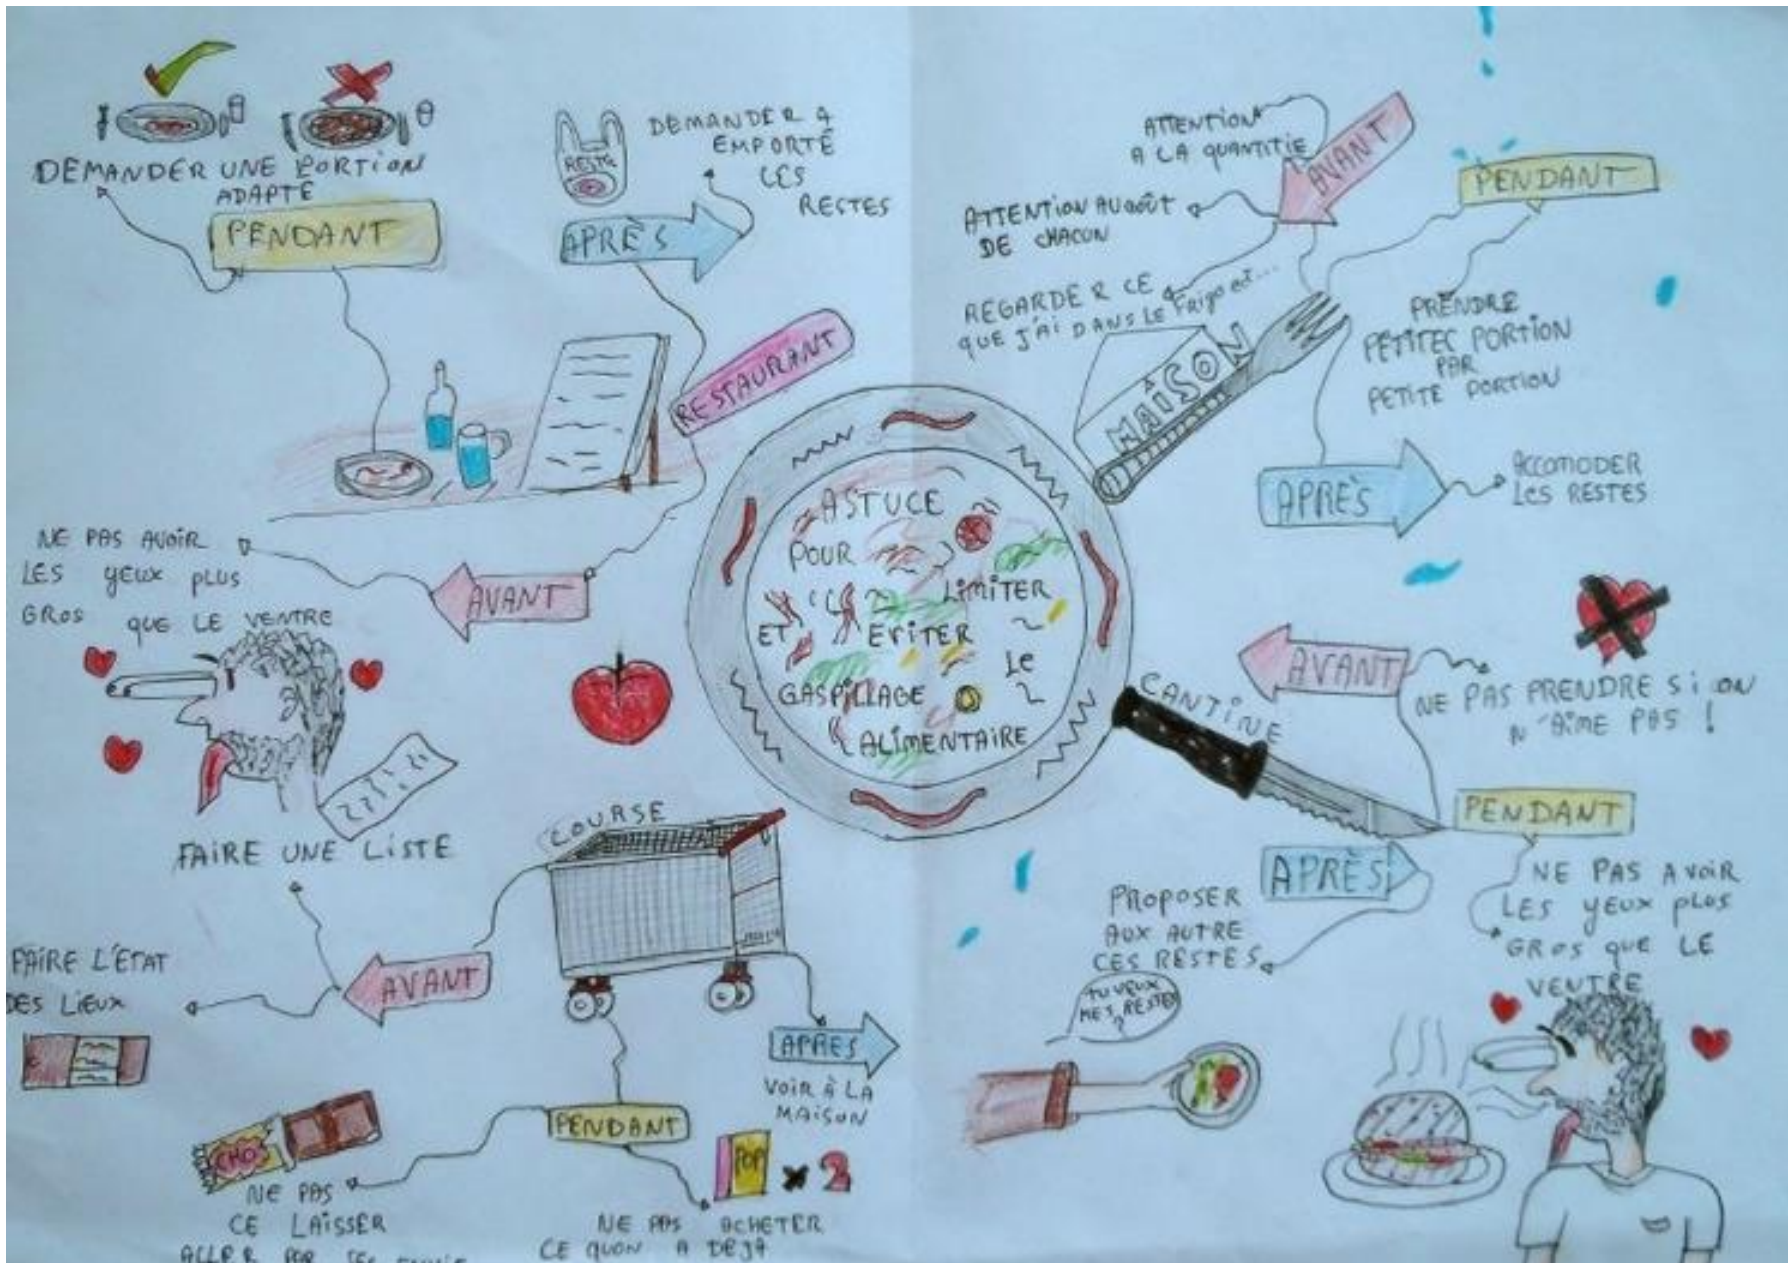 ASTUCE
POUR
LIMITER
ET EVITER
LE
GASPILLAGE
ALIMENTAIRE
RESTAURANT
AVANT
NE PAS AVOIR
LES YEUX PLUS
GROS QUE LE VENTRE
PENDANT
DEMANDER UNE PORTION
ADAPTE
APRÈS
DEMANDER A
EMPORTÉ
LES
RESTES
MAISON
AVANT
ATTENTION
A LA QUANTITIE
ATTENTION AU GOÛT
DE CHACUN
REGARDER CE
QUE J'AI DANS LE Frigo et...
PENDANT
PRENDRE
PETITEC PORTION
PAR
PETITE PORTION
APRÈS
ACCOMODER
LES RESTES
CANTINE
AVANT
NE PAS PRENDRE SI ON
N'AIME PAS !
PENDANT
NE PAS AVOIR
LES YEUX PLUS
GROS QUE LE
VENTRE
APRÈS
PROPOSER
AUX AUTRE
CES RESTES
TU VEUX
MES RESTES
?
COURSE
AVANT
FAIRE UNE LISTE
FAIRE L'ÉTAT
DES LIEUX
PENDANT
CHO
NE PAS
CE LAISSER
ALLER PAR
POP
x 2
NE PAS ACHETER
CE QUON A DEJA
APRES
VOIR À LA
MAISON